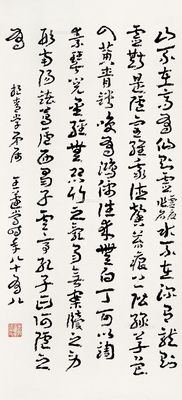 山不在高有仙則靈水不在深有龍則
靈斯是陋室惟吾德馨苔痕上階綠草色
入簾青談笑有鴻儒往來無白丁可以調
素琴閱金經無絲竹之亂耳無案牘之勞
形南陽諸葛廬西蜀子雲亭孔子曰何陋之
有
時年八十有八